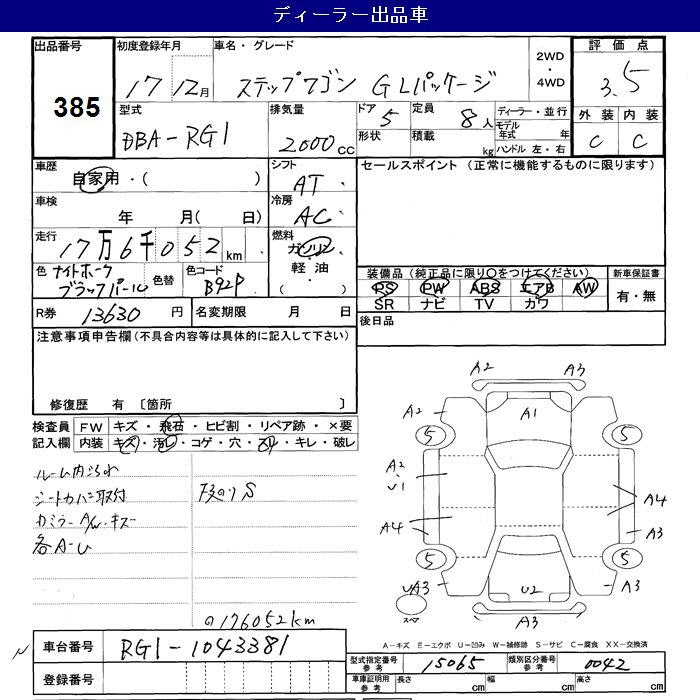 ディーラー出品車
出品番号
385
初度登録年月
17 12月
車名・グレード
ステップワゴン GLパッケージ
2WD
・
4WD
評価点
3.5
型式
DBA-RG1
排気量
2000cc
ドア 5
定員 8人
形状
積載 kg
ディーラー・並行
モデル年式 年
ハンドル 左・右
外装 内装
C C
車歴
自家用・( )
シフト
AT
車検
年 月( 日)
冷房
AC
走行
17万6千052km
燃料
ガソリン
軽油
・( )
色 ナイトホーク
ブラックパール
色替
色コード
B92P
R券 13630円
名変期限 月 日
セールスポイント (正常に機能するものに限ります)
装備品 (純正品に限り○をつけてください)
PS PW ABS エアB AW
SR ナビ TV カワ
新車保証書
有・無
後日品
注意事項申告欄 (不具合内容等は具体的に記入して下さい)
修復歴 有 〔箇所 〕
検査員
記入欄
FW キズ・飛石・ヒビ割・リペア跡・×要
内装 キズ・汚レ・コゲ・穴・スリ・キレ・破レ
ルーム内汚れ
シートカバー取付
カミラーA/W・キズ
各A-U
下廻りS
@176052km
車台番号 RG1-1043381
登録番号
A2 A3
A2 A1
5 5
A2
・
U1
A4 A4
A3
5 5
UA3 U2 A3
スペア
A3
A-キズ E-エクボ U-凹み W-補修跡 S-サビ C-腐食 XX-交換済
型式指定番号
参考
15065
類別区分番号
参考
0042
車庫証明用
参考
長さ cm 幅 cm 高さ cm